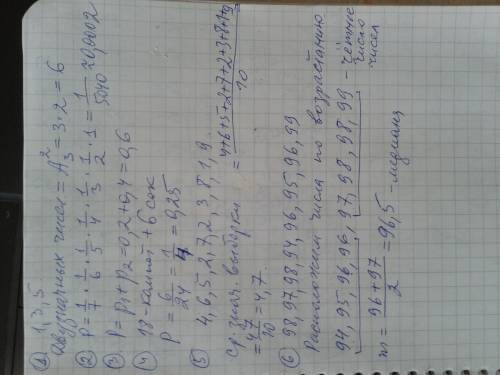 ① 1, 3, 5
двузначных чисел = A₃² = 3·2 = 6
② P = 1/7 · 1/6 · 1/5 · 1/4 · 1/3 · 1/2 · 1 = 1/5040 ≈ 0,0002
③ P = P1 + P2 = 0,2 + 0,4 = 0,6
④ 18 - компот + 6 сок
P = 6/24 = 1/4 = 0,25
⑤ 4, 6, 5, 2, 7, 2, 3, 8, 1, 9
ср. знач. выборки = 4+6+5+2+7+2+3+8+1+9/10
= 47/10 = 4,7
⑥ 98, 97, 98, 94, 96, 95, 96, 99
Расположим числа по возрастанию
94, 95, 96, 96, 97, 98, 98, 99 - чётное число чисел
m = 96 + 97/2 = 96,5 - медиана